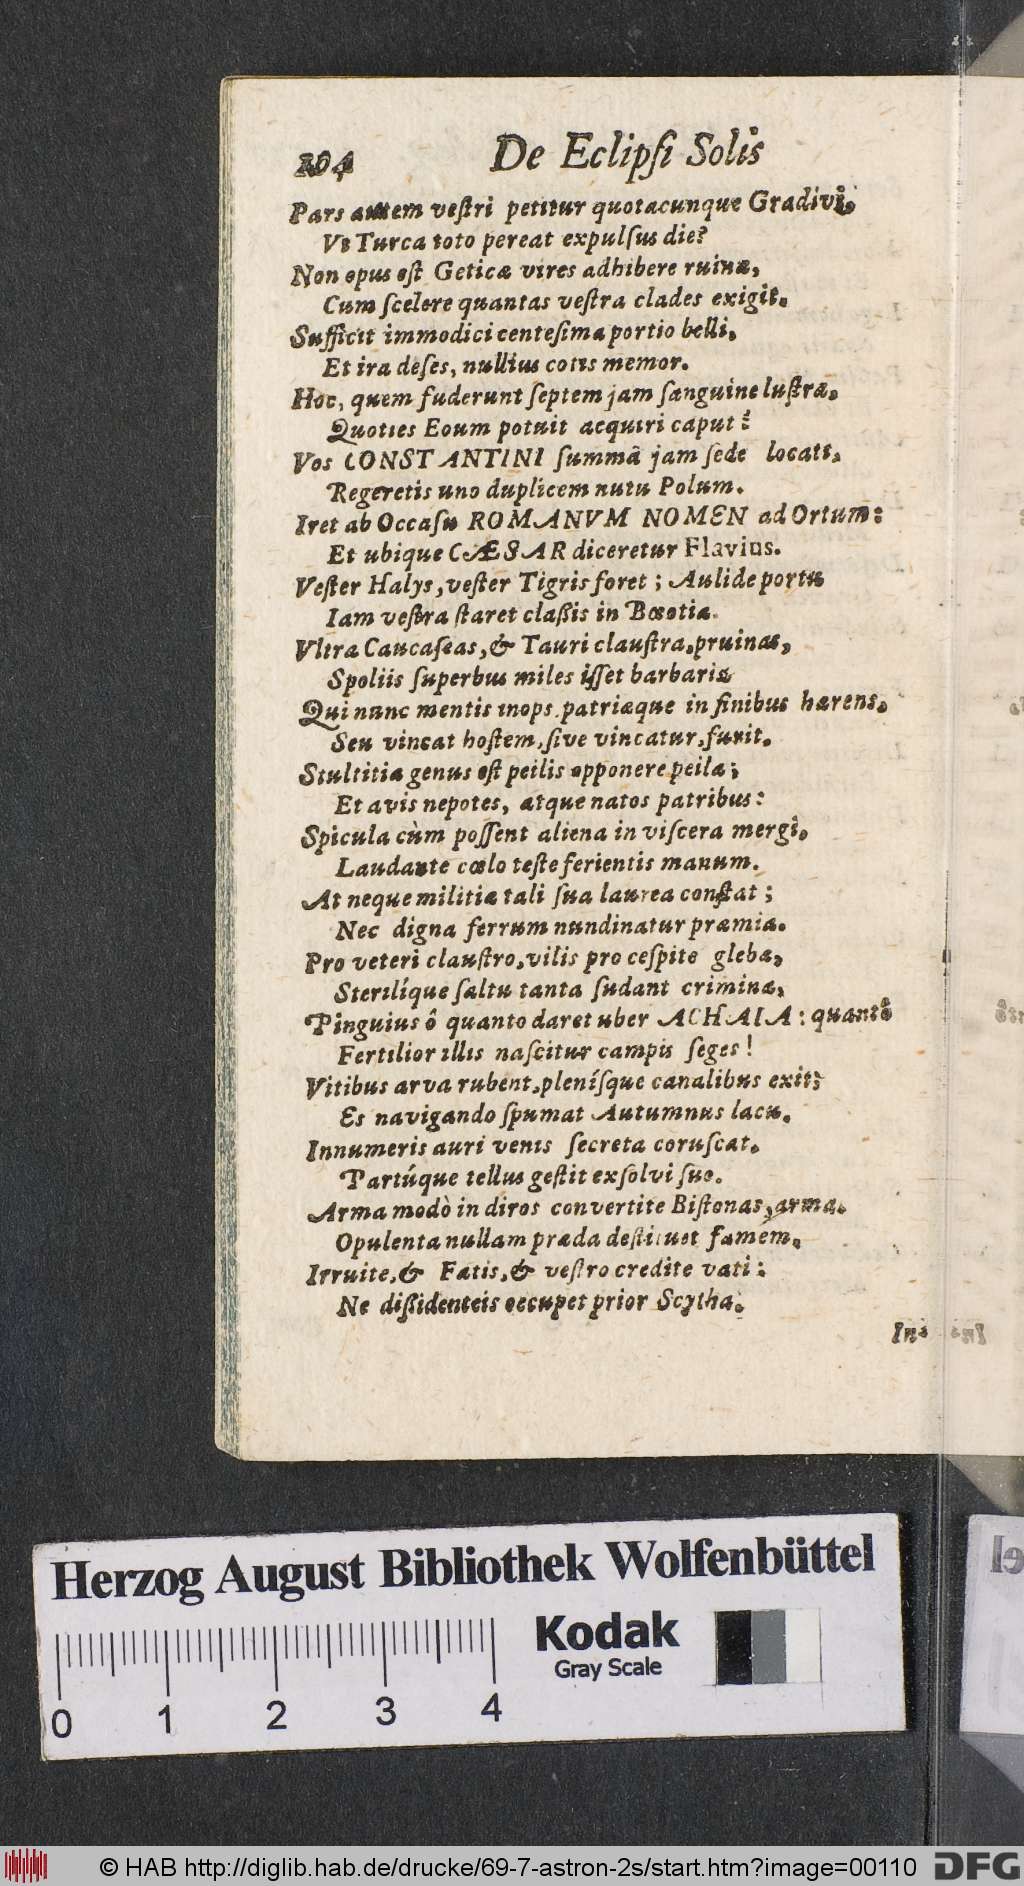 104 De Eclipſi Solis
Pars autem veſtri petitur quotacunque Gradivi,
Vt Turca toto pereat expulſus die?
Non opus eſt Geticæ vires adhibere ruinæ,
Cum ſcelere quantas veſtra clades exigit.
Sufficit immodici centeſima portio belli,
Et ira deſes, nullius cotis memor.
Hoc, quem fuderunt ſeptem jam ſanguine luſtra,
Quoties Eoum potuit acquiri caput?
Vos CONSTANTINI ſummâ jam ſede locati,
Regeretis uno duplicem nutu Polum.
Iret ab Occaſu ROMANVM NOMEN ad Ortum:
Et ubique CÆSAR diceretur Flavius.
Veſter Halys, veſter Tigris foret; Aulide portu
Iam veſtra ſtaret claßis in Bœotia.
Vltra Caucaſeas, & Tauri clauſtra, pruinas,
Spoliis ſuperbus miles iſſet barbaris
Qui nunc mentis inops, patriæque in finibus hærens,
Seu vincat hoſtem, ſive vincatur, furit.
Stultitia genus eſt peilis opponere peila;
Et avis nepotes, atque natos patribus:
Spicula cùm poſſent aliena in viſcera mergi,
Laudante cœlo teſte ferientis manum.
At neque militiæ tali ſua laurea conſtat;
Nec digna ferrum nundinatur præmia.
Pro veteri clauſtro, vilis pro ceſpite glebæ,
Sterilíque ſaltu tanta ſudant crimina,
Pinguius ô quanto daret uber ACHAIA: quantò
Fertilior illis naſcitur campis ſeges!
Vitibus arva rubent, pleníſque canalibus exit;
Es navigando ſpumat Autumnus lacu.
Innumeris auri venis ſecreta coruſcat,
Partúque tellus geſtit exſolvi ſuo.
Arma modò in diros convertite Biſtonas, arma.
Opulenta nullam præda deſtituet famem.
Irruite, & Fatis, & veſtro credite vati:
Ne dißidenteis occupet prior Scytha.
Ins
Herzog August Bibliothek Wolfenbüttel
Kodak
Gray Scale
0 1 2 3 4
© HAB http://diglib.hab.de/drucke/69-7-astron-2s/start.htm?image=00110 DFG